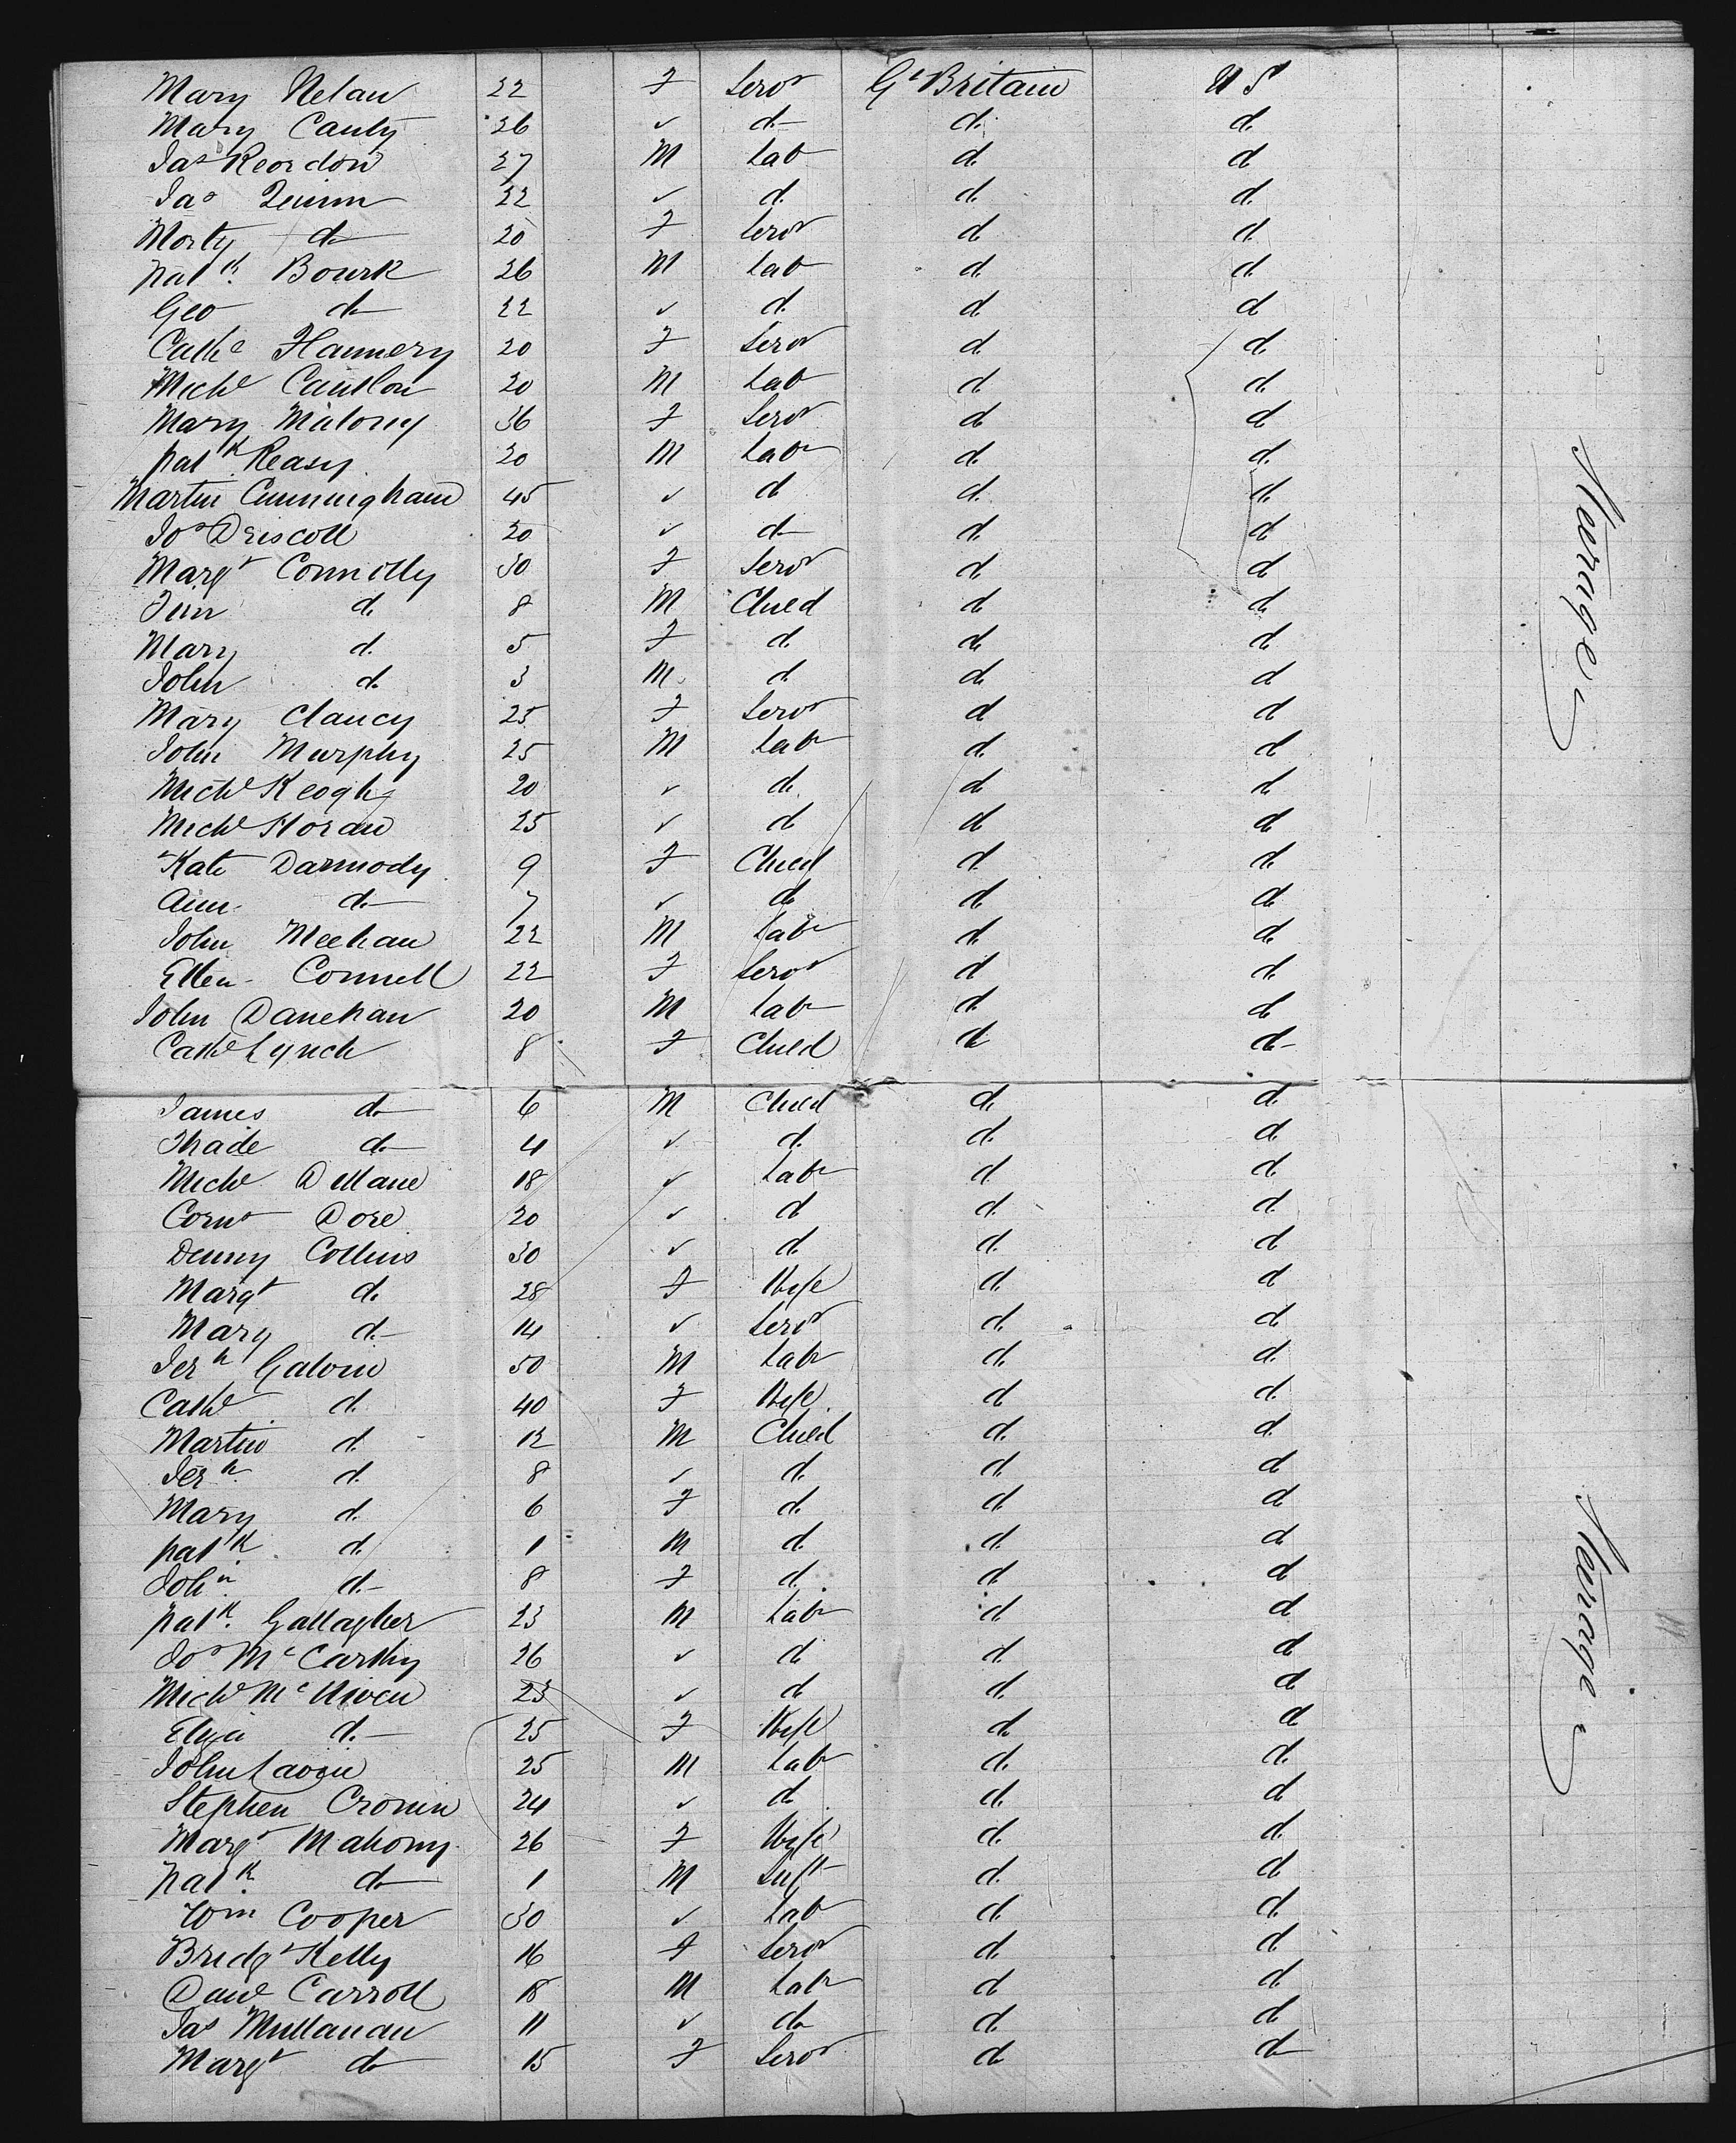 Mary Nelan 22 F Servt Gt Britain U S
Mary Canty 26 ✓ do do do
Jas Reordon 27 M Labr do do
Jas Quinn 22 ✓ do do do
Morty do 20 F Servt do do
Patk Bourk 26 M Labr do do
Geo do 22 ✓ do do do
Cathe Flannery 20 F Servt do do
Michl 20 M Labr do do
Mary Malony 36 F Servt do do
Patk Reasy 20 M Labr do do
Martin Cunningham 45 ✓ do do do
Jos Driscoll 20 ✓ do do do
Margt Connolly 30 F Servt do do
Tim do 8 M Child do do
Mary do 5 F do do do
John do 3 M do do do
Mary Clancy 25 F Servt do do
John Murphy 25 M Labr do do
Michl Keogh 20 ✓ do do do
Michl Horan 25 ✓ do do do
Kate Darmody 9 F Child do do
Ann do 7 ✓ do do do
John Meehan 22 M Labr do do
Ellen Connell 22 F Servt do do
John Danehan 20 M Labr do do
Cathe Lynch 8 F Child do do
Steerage
James do 6 M Child do do
Thade do 4 ✓ do do do
Michl Dillane 18 ✓ Labr do do
Corns Dore 20 ✓ do do do
Denny Collins 30 ✓ do do do
Margt do 28 F Wife do do
Mary do 14 ✓ Servt do do
Jerh Galvin 50 M Labr do do
Cathe do 40 F Wife do do
Martin do 12 M Child do do
Jerh do 8 ✓ do do do
Mary do 6 F do do do
Patk do 1 M do do do
Joh n do 8 F do do do
Patk Gallagher 23 M Labr do do
Jos McCarthy 26 ✓ do do do
Michl McNiven 23 ✓ do do do
Eliza do 25 F Wife do do
John Lavin 25 M Labr do do
Stephen Cronin 24 ✓ do do do
Margt Mahony 26 F Wife do do
Patk do 1 M Inft do do
Wm Cooper 30 ✓ Labr do do
Bridgt Kelly 16 F Servt do do
Danl Carroll 18 M Labr do do
Jas Mullanan 11 ✓ do do do
Margt do 15 F Servt do do
Steerage